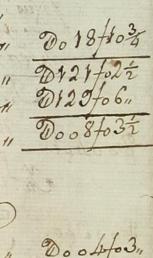 " Do 18 fo 3/4
" Do 121 fo 2 1/2
Do 129 fo 6 "
" Do 08 fo 3 1/2
Do 04 fo 3 "